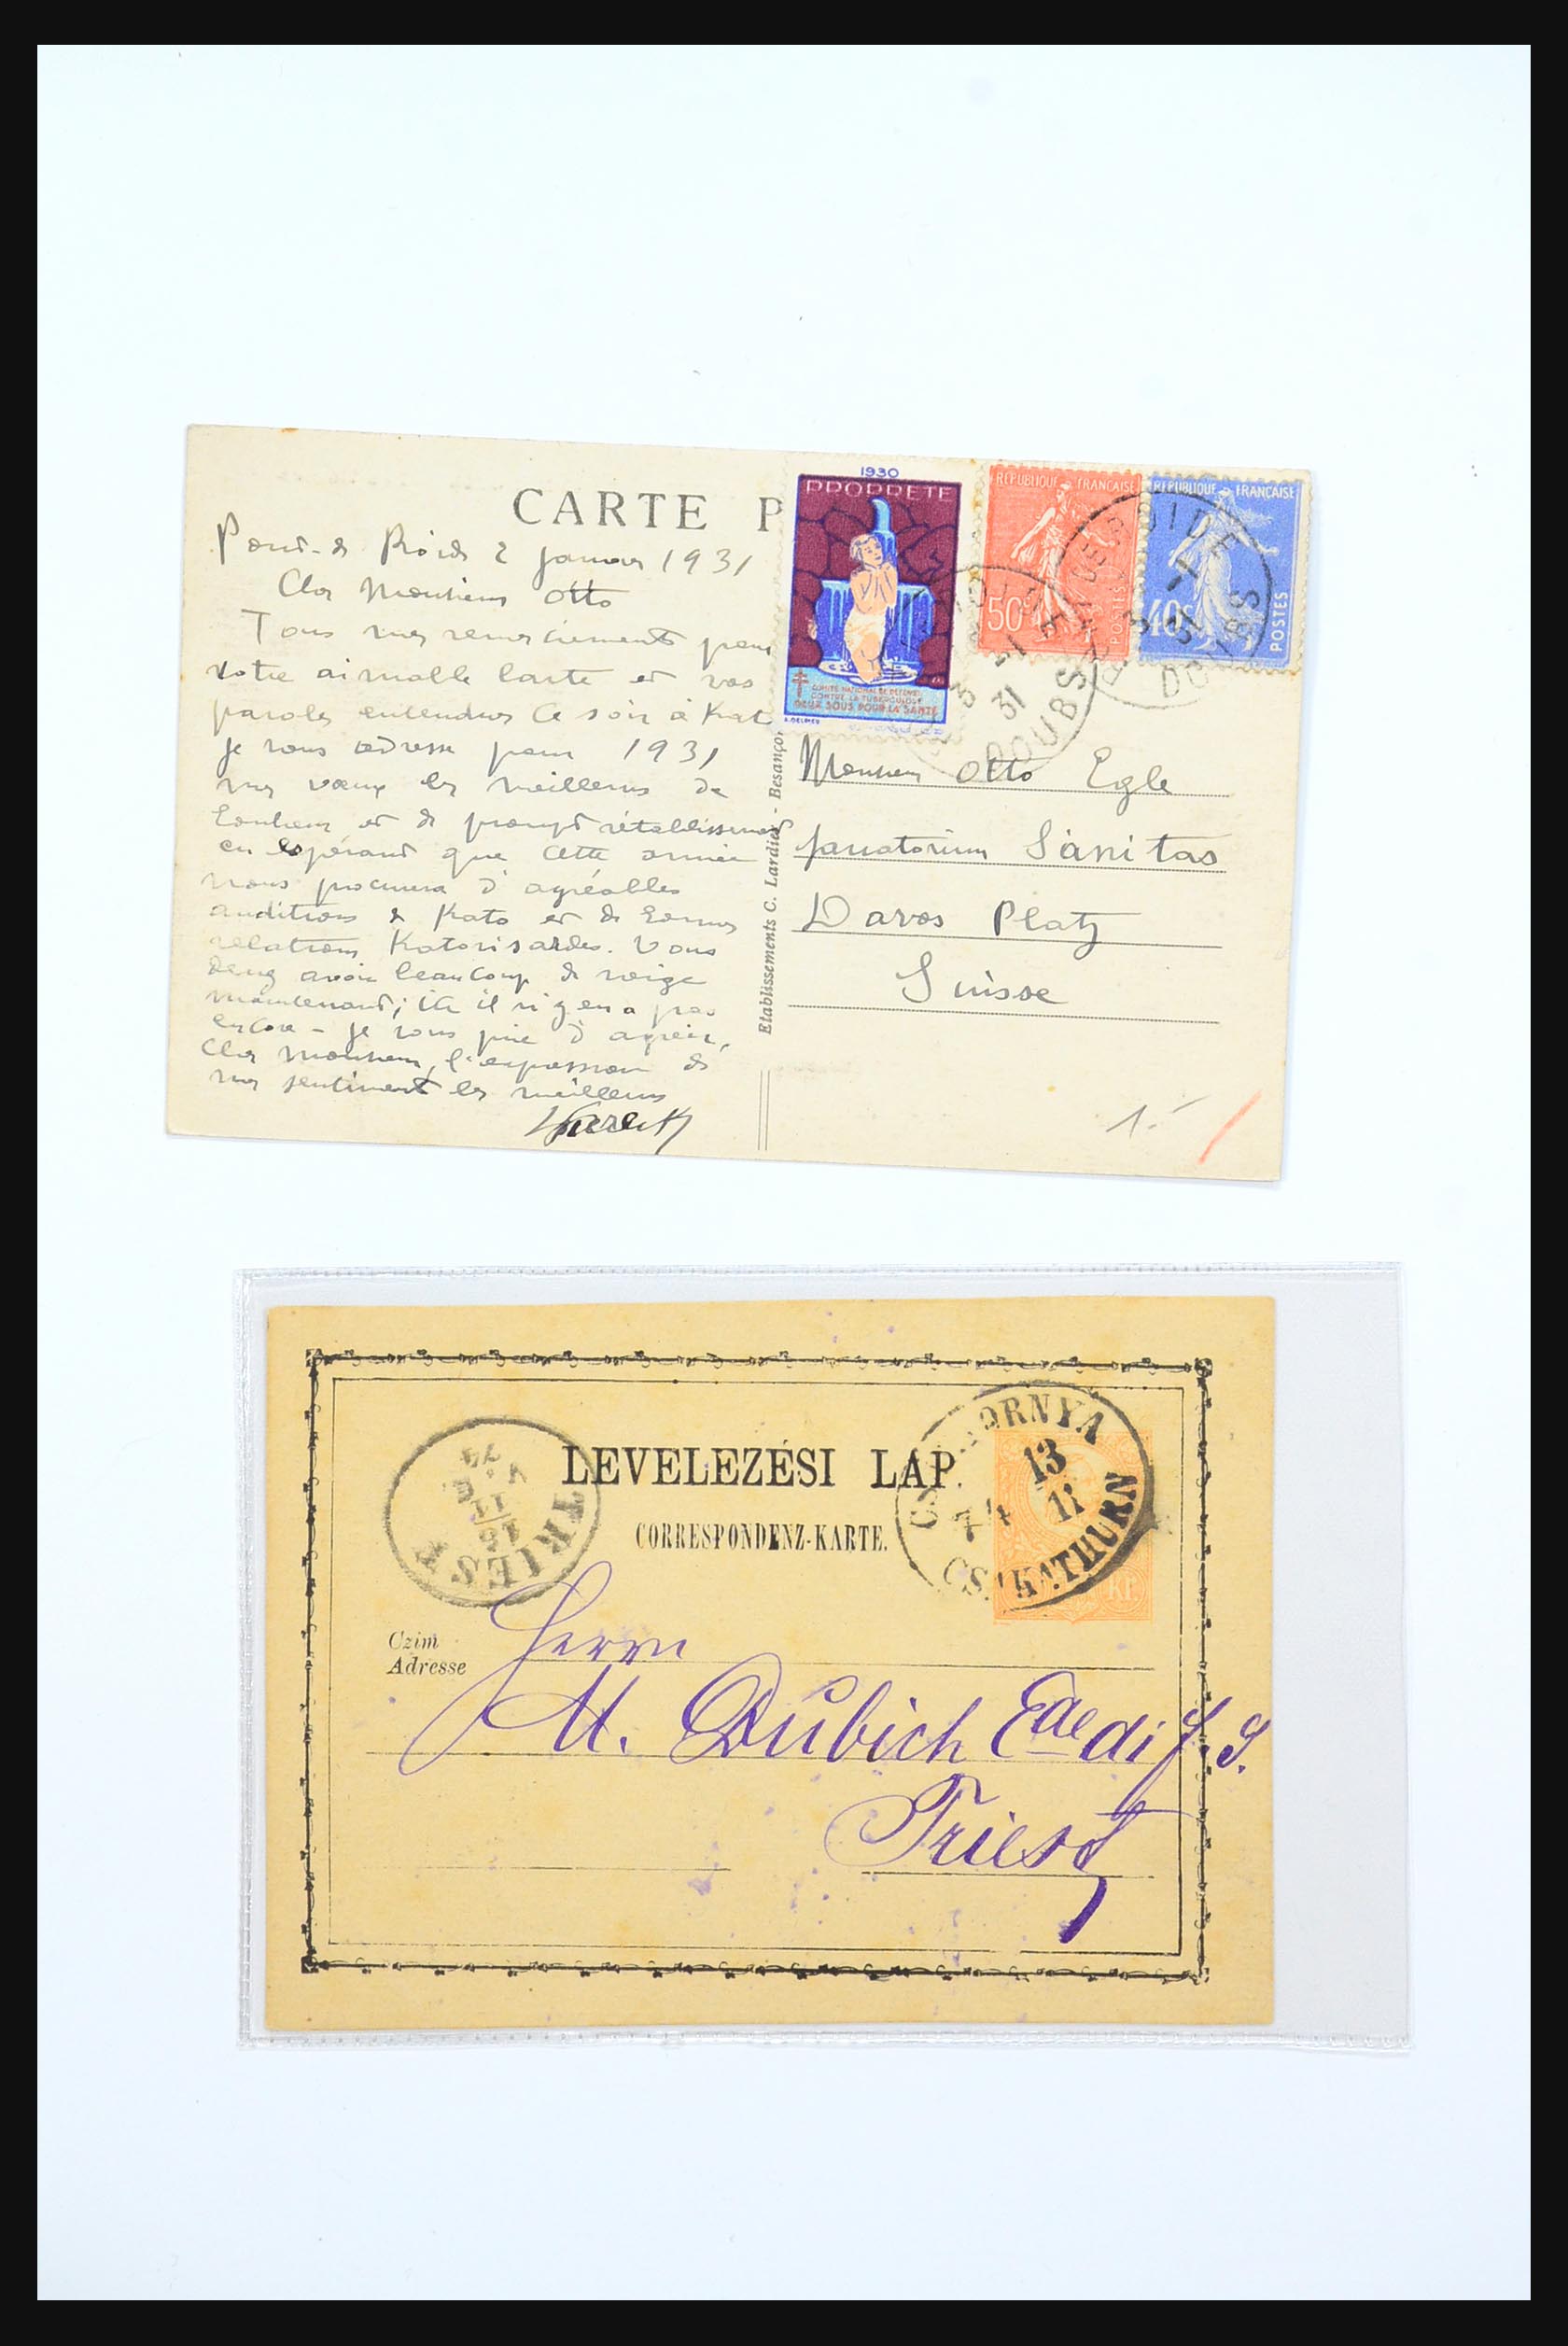 CARTE P
1930
PROPRETE
COMITÉ NATIONAL DE DÉFENSE
CONTRE LA TUBERCULOSE
DEUX SOUS POUR LA SANTÉ
REPUBLIQUE FRANÇAISE
50
POSTES
REPUBLIQUE FRANÇAISE
40c
POSTES
3 -1
31
DOUBS
3 -1
31
DOUBS
Pont-de Roide 2 Janvier 1931
Cher Monsieur Otto
Tous mes remerciements pour
votre aimable carte et vos
paroles entendues ce soir à Kat
je vous adresse pour 1931
mes vœux les meilleurs de
bonheur et de prompt rétablissement
en espérant que cette année
nous procurera d'agréables
auditions de Kato et de bonnes
relations Katorisardes. Vous
devez avoir beaucoup de neige
maintenant; ici il n'y en a pas
encore - je vous prie d'agréer,
Cher Monsieur, l'expression de
mes sentiments les meilleurs
Etablissements C. Lardier - Besançon
Monsieur Otto Egle
Sanatorium Sanitas
Davos Platz
Suisse
1.-
LEVELEZÉSI LAP.
CORRESPONDENZ-KARTE.
TRIEST
ORNYA
13
74 11
CSAKATHURN
KR.
Czim
Adresse
Herrn
M. Dubich Ede di J. S.
Triest